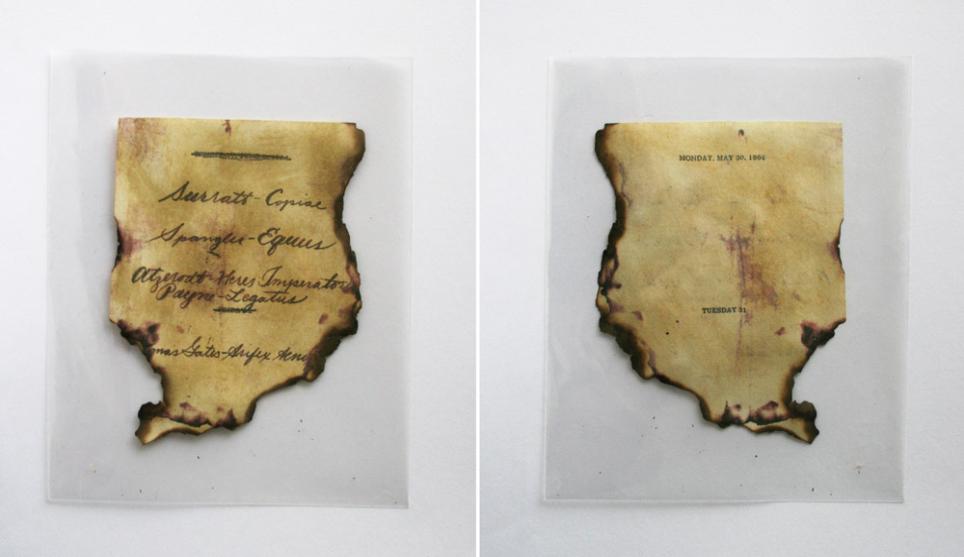 Surratt - Copiae
Spangler - Equus
Atzerodt - Heres Imperator
Payne - Legatus
mas Gates - Artifex
MONDAY, MAY 30, 1864
TUESDAY 31